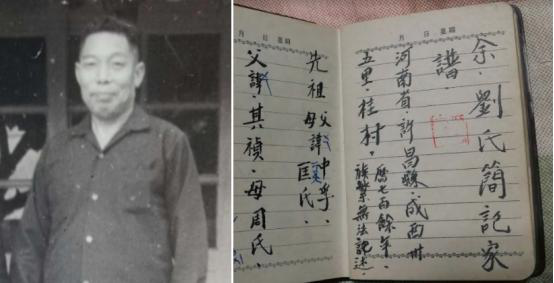 月 日 星期
余.劉氏簡記家
譜.
河南省許昌縣.成西卅
五里.桂村,
歷七百餘年.
族繁無法記述.
月 日 星期
先祖
父諱中孚、
母諱匡氏、
父諱.其禎.母周氏.